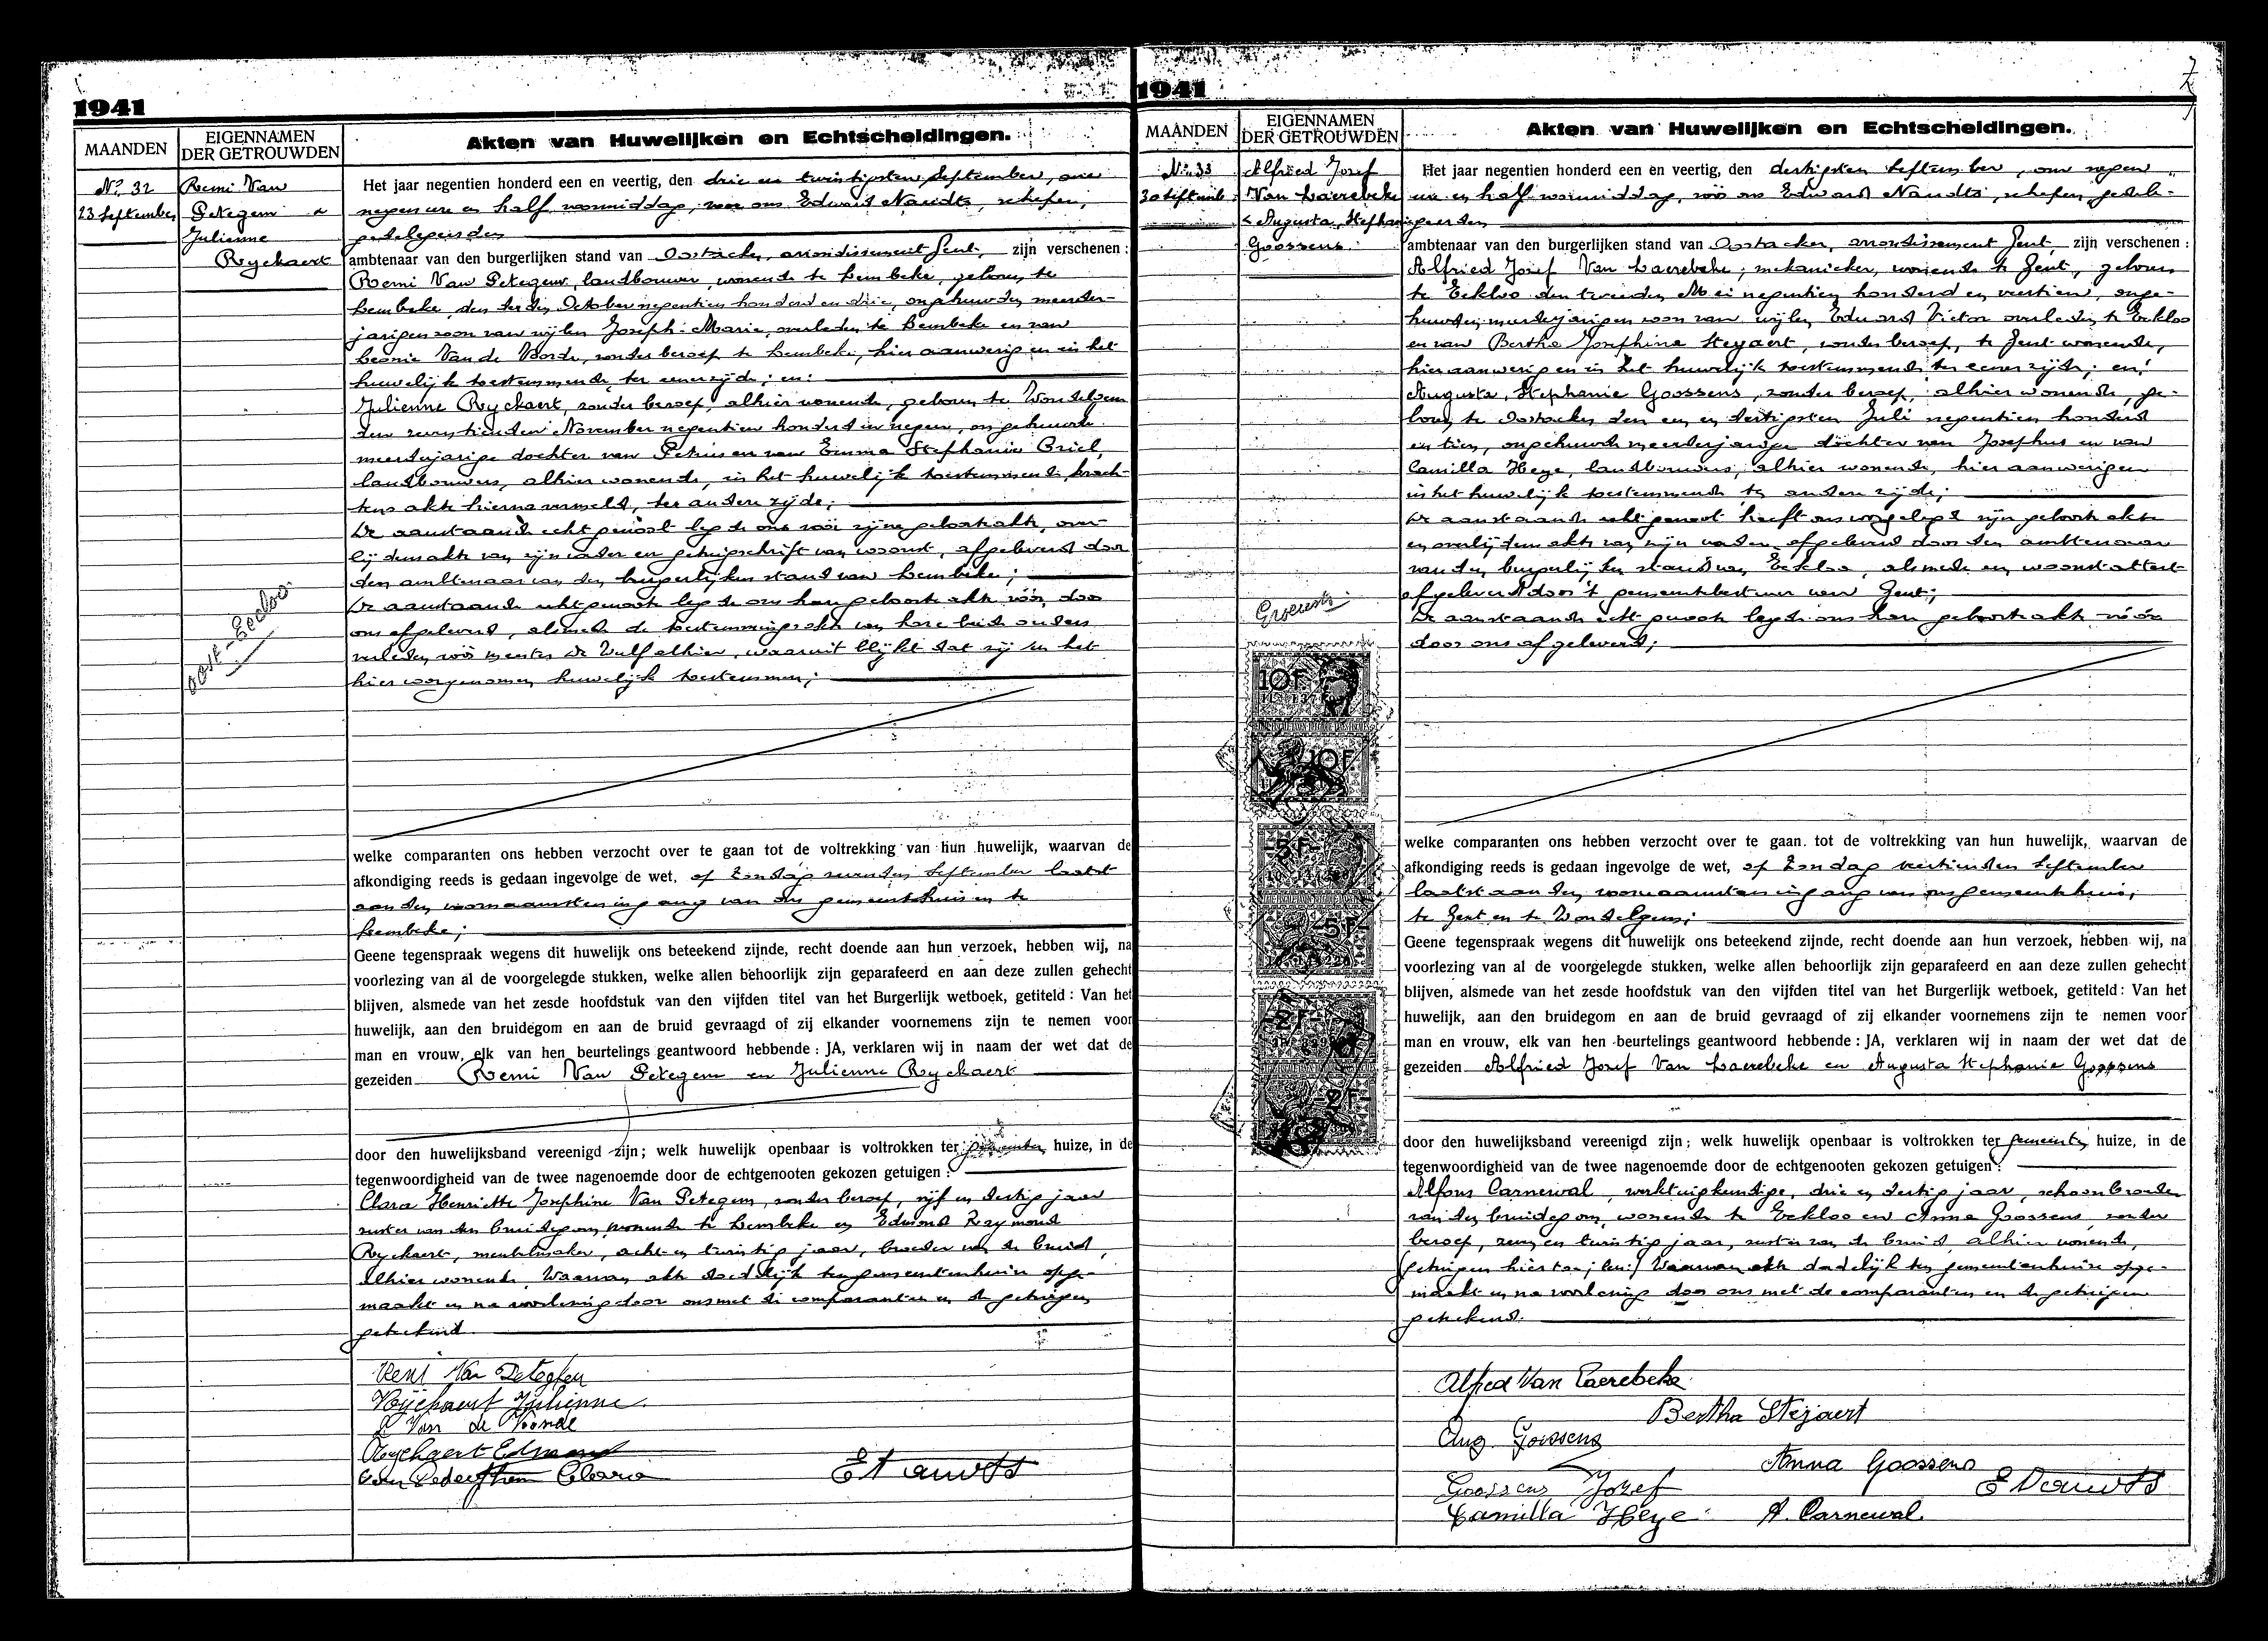 1941
MAANDEN
EIGENNAMEN
DER GETROUWDEN
Akten van Huwelijken en Echtscheidingen.
Nº 32
23 September
Remi Van
Petegem &
Julienne
Ryckaert
Het jaar negentien honderd een en veertig, den drie en twintigsten September, om
negen ure en half voormiddag, voor ons Edward Naudts, schepen,
gedelegeerden
ambtenaar van den burgerlijken stand van Oostacker, arrondissement Gent, zijn verschenen :
Remi Van Petegem, landbouwer, wonende te Lembeke, geboren te
Lembeke, den derden October negentien honderd en drie, ongehuwden meerder-
jarigen zoon van wijlen Joseph-Marie, overleden te Lembeke en van
Leonie Van de Voorde, zonder beroep te Lembeke, hier aanwezig en in het
huwelijk toestemmende, ter eener zijde; en:
Julienne Ryckaert, zonder beroep, alhier wonende, geboren te Wondelgem
den zeventienden November negentien honderd en negen, ongehuwde
meerderjarige dochter van Petrus en van Emma Stephanie Criel,
landbouwers, alhier wonende, in het huwelijk toestemmende krach-
tens akte hierna vermeld, ter andere zijde;
De aanstaande echtgenoot legde ons voor zijne geboorteakte, over-
lijdensakte van zijn vader en getuigschrift van woonst, afgeleverd door
den ambtenaar van den burgerlijken stand van Lembeke;
De aanstaande echtgenoote legde ons haar geboorteakte vóór, door
ons afgeleverd, alsmede de toestemmingsakte van hare beide ouders
verleden voor meester De Vulf alhier, waaruit blijkt dat zij in het
hier voorgenomen huwelijk toestemmen;
welke comparanten ons hebben verzocht over te gaan tot de voltrekking van hun huwelijk, waarvan de
afkondiging reeds is gedaan ingevolge de wet, op Zondag zevenden September laatst
aan den voornaamsten ingang van ons gemeentehuis en te
Lembeke;
Geene tegenspraak wegens dit huwelijk ons beteekend zijnde, recht doende aan hun verzoek, hebben wij, na
voorlezing van al de voorgelegde stukken, welke allen behoorlijk zijn geparafeerd en aan deze zullen gehecht
blijven, alsmede van het zesde hoofdstuk van den vijfden titel van het Burgerlijk wetboek, getiteld : Van het
huwelijk, aan den bruidegom en aan de bruid gevraagd of zij elkander voornemens zijn te nemen voor
man en vrouw, elk van hen beurtelings geantwoord hebbende : JA, verklaren wij in naam der wet dat de
gezeiden Remi Van Petegem en Julienne Ryckaert
door den huwelijksband vereenigd zijn; welk huwelijk openbaar is voltrokken ter gemeenten huize, in de
tegenwoordigheid van de twee nagenoemde door de echtgenooten gekozen getuigen :
Clara Henriette Josephine Van Petegem, zonder beroep, vijf en dertig jaar
zuster van den bruidegom, wonende te Lembeke en Edmond Raymond
Ryckaert, meubelmaker, acht en twintig jaar, broeder van de bruid,
alhier wonende. Waarvan akte dadelijk ten gemeentenhuize opge-
maakt en na voorlezing door ons met de comparanten en de getuigen
geteekend.
Remi Van Peteghem
Ryckaert Julienne
L Van de Voorde
Ryckaert Edmond
Van Peteghem Clara
E Naudts
1941
MAANDEN
EIGENNAMEN
DER GETROUWDEN
Akten van Huwelijken en Echtscheidingen.
Nº 33
30 September
Alfried Jozef
Van Laerebeke
& Augusta, Stephanie
Goossens
Het jaar negentien honderd een en veertig, den dertigsten September, om negen
ure en half voormiddag, vóór ons Edward Naudts, schepen, gedele-
geerden
ambtenaar van den burgerlijken stand van Oostacker, arrondissement Gent, zijn verschenen :
Alfried Jozef Van Laerebeke, mekanieker, wonende te Gent, geboren
te Eekloo den tweeden Mei negentien honderd en veertien, onge-
huwden meerderjarigen zoon van wijlen Eduard Victor overleden te Eekloo
en van Bertha Josephina Steyaert, zonder beroep, te Gent wonende,
hier aanwezig en in het huwelijk toestemmende ter eener zijde; en:
Augusta, Stephanie Goossens, zonder beroep, alhier wonende, ge-
boren te Oostacker den een en dertigsten Juli negentien honderd
en tien, ongehuwde meerderjarige dochter van Josephus en van
Camilla Heye, landbouwers, alhier wonende, hier aanwezig en
in het huwelijk toestemmende ter andere zijde;
De aanstaande echtgenoot heeft ons voorgelegd zijn geboorteakte
en overlijdensakte van zijn vader afgeleverd door den ambtenaar
van den burgerlijken stand van Eekloo, alsmede een woonstattest
afgeleverd door 't gemeentebestuur van Gent;
De aanstaande echtgenoote legde ons haar geboorteakte vóór
door ons afgeleverd;
10F
10F
5F
5F
2F
2F
welke comparanten ons hebben verzocht over te gaan tot de voltrekking van hun huwelijk, waarvan de
afkondiging reeds is gedaan ingevolge de wet, op Zondag veertienden September
laatst aan den voornaamsten ingang van ons gemeentehuis,
te Gent en te Wondelgem;
Geene tegenspraak wegens dit huwelijk ons beteekend zijnde, recht doende aan hun verzoek, hebben wij, na
voorlezing van al de voorgelegde stukken, welke allen behoorlijk zijn geparafeerd en aan deze zullen gehecht
blijven, alsmede van het zesde hoofdstuk van den vijfden titel van het Burgerlijk wetboek, getiteld : Van het
huwelijk, aan den bruidegom en aan de bruid gevraagd of zij elkander voornemens zijn te nemen voor
man en vrouw, elk van hen beurtelings geantwoord hebbende : JA, verklaren wij in naam der wet dat de
gezeiden Alfried Jozef Van Laerebeke en Augusta Stephanie Goossens
door den huwelijksband vereenigd zijn; welk huwelijk openbaar is voltrokken ter gemeenten huize, in de
tegenwoordigheid van de twee nagenoemde door de echtgenooten gekozen getuigen :
Alfons Carnewal, werktuigkundige, drie en dertig jaar, schoonbroeder
van den bruidegom, wonende te Eekloo en Anna Goossens, zonder
beroep, zeven en twintig jaar, zuster van de bruid, alhier wonende,
Waarvan akte dadelijk ten gemeentenhuize opge-
maakt en na voorlezing door ons met de comparanten en de getuigen
geteekend.
Alfred Van Laerebeke
Bertha Steyaert
Aug. Goossens
Anna Goossens
Goossens Jozef
E Naudts
Camilla Heye
A. Carnewal